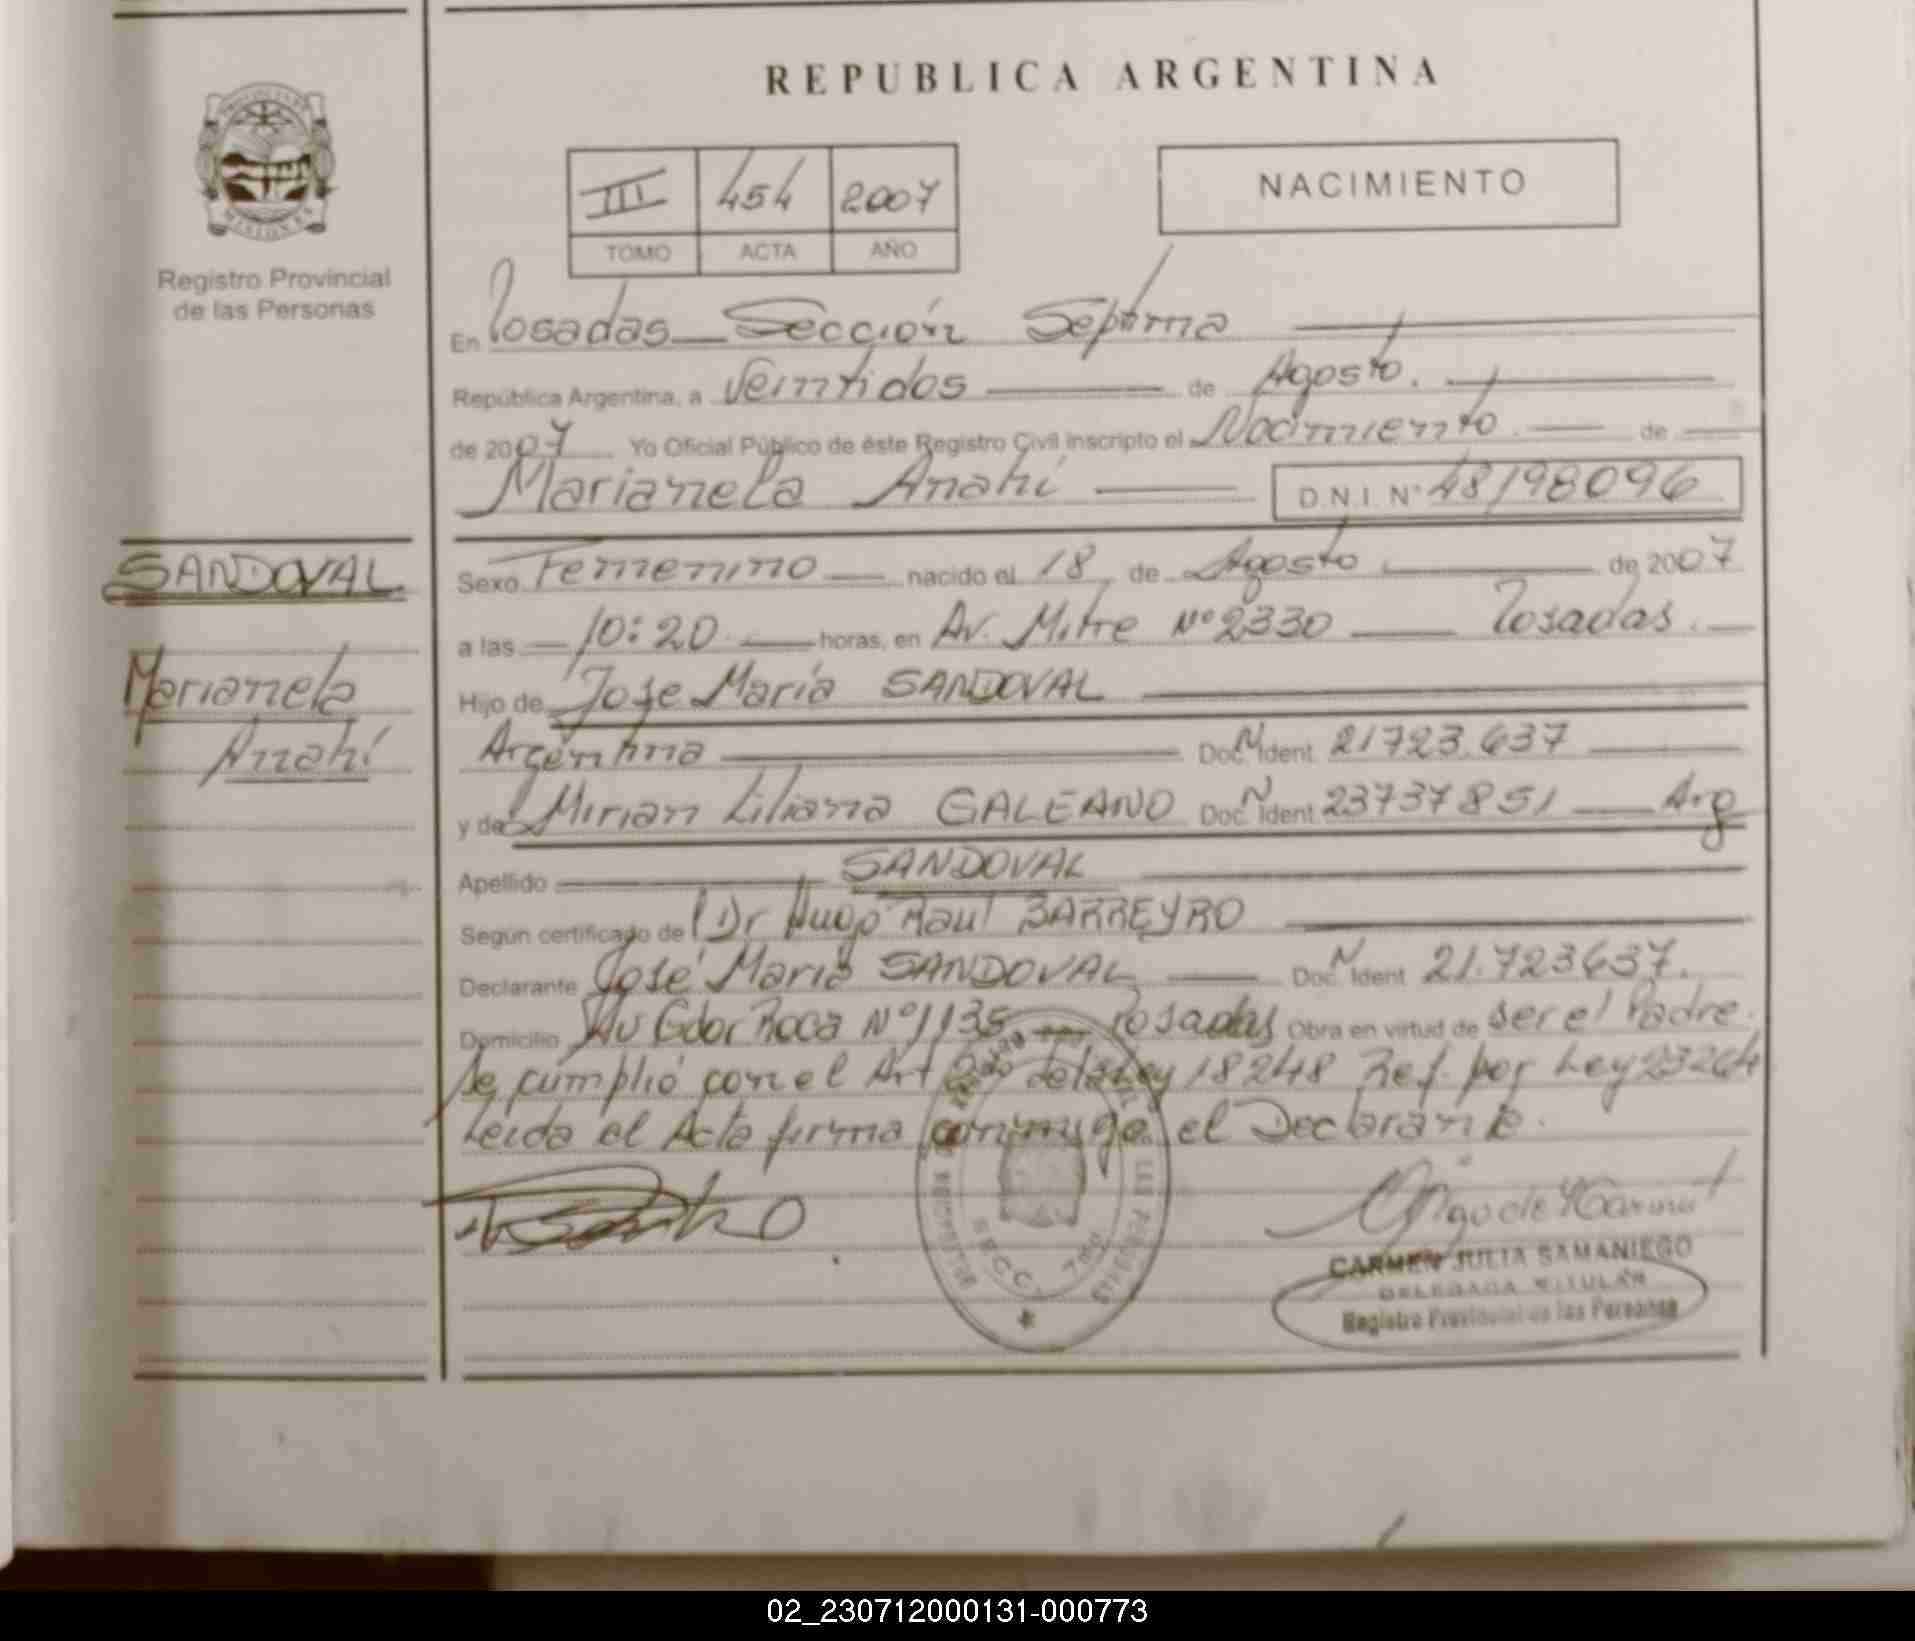 REPUBLICA ARGENTINA
PROVINCIA DE
MISIONES
Registro Provincial
de las Personas
III 454 2007
TOMO ACTA AÑO
NACIMIENTO
En Posadas Sección Séptima
República Argentina, a Veintidos de Agosto.
de 2007 Yo Oficial Público de éste Registro Civil inscripto el Nacimiento. de
Marianela Anahí D.N.I. Nº 48198096
SANDOVAL
Marianela
Anahí
Sexo Femenino nacido el 18 de Agosto de 2007
a las 10:20 horas, en Av. Mitre Nº 2330 Posadas.
Hijo de Jose María SANDOVAL
Argentina Doc. N Ident 21723.637
y de Mirian Liliana GALEANO Doc. N Ident 23737851 Arg
Apellido SANDOVAL
Según certificado de Dr Hugo Raul BARREYRO
Declarante José María SANDOVAL Doc. N Ident 21.723637.
Domicilio Av Gdor Roca Nº 1135 Posadas Obra en virtud de ser el Padre.
Se cumplió con el Art de la Ley 18248 Ref. por Ley 23264
Leida el Acta firma conmigo el Declarante.
SECC. 7ma
CARMEN JULIA SAMANIEGO
DELEGADA TITULAR
Registro Provincial de las Personas
02_230712000131-000773